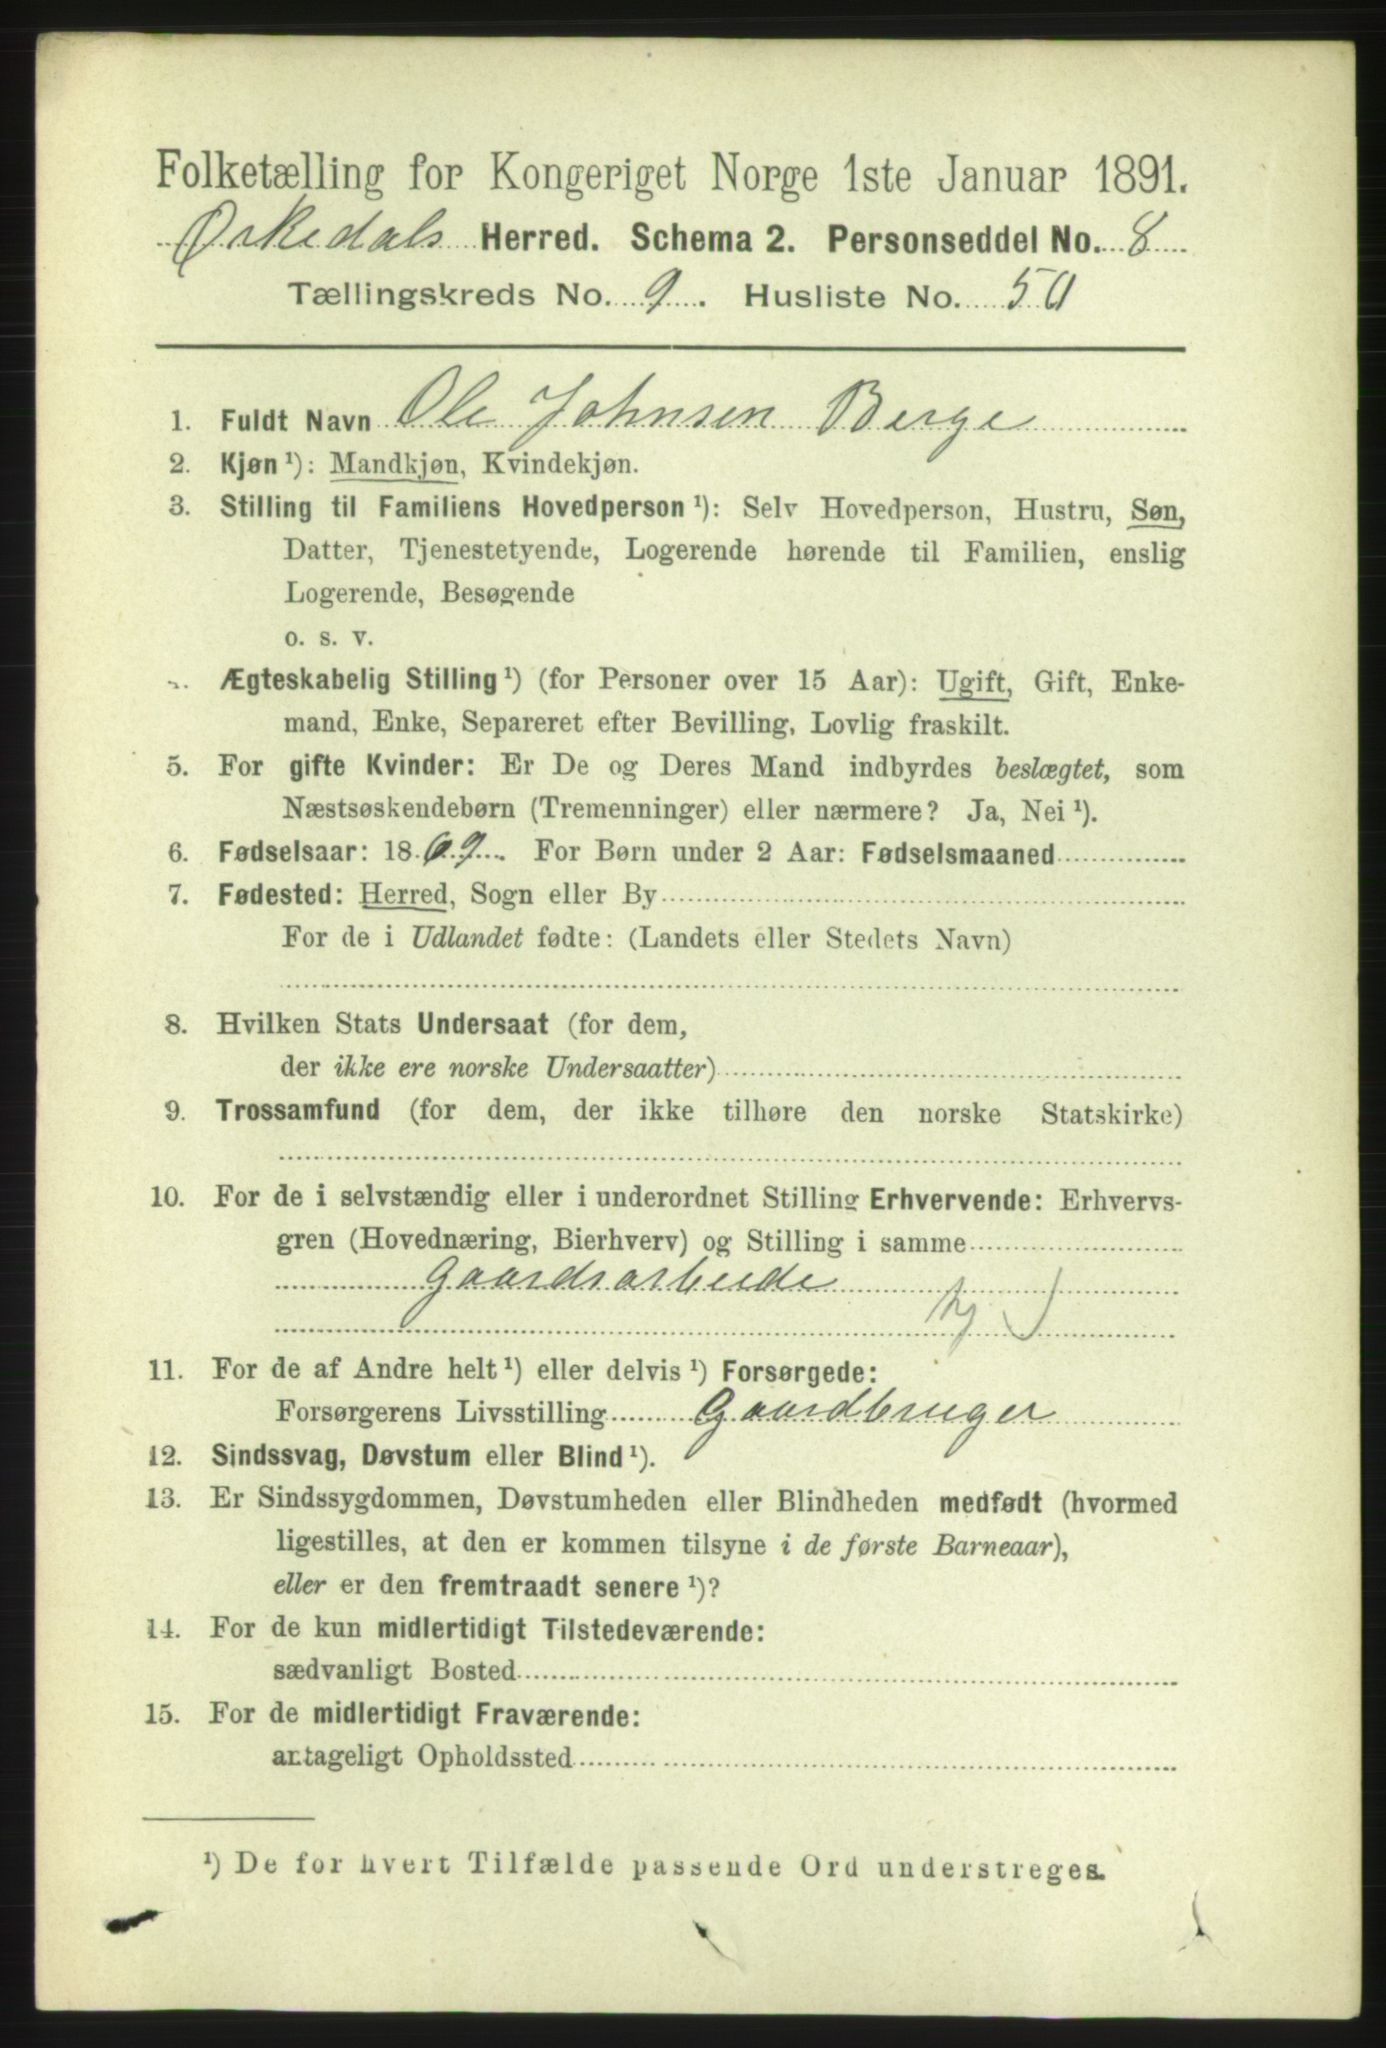 Folketælling for Kongeriget Norge 1ste Januar 1891.
Orkedals Herred. Schema 2. Personseddel No. 8
Tællingskreds No. 9. Husliste No. 50
1. Fuldt Navn Ole Johnsen Berge
2. Kjøn ¹): Mandkjøn, Kvindekjøn.
3. Stilling til Familiens Hovedperson ¹): Selv Hovedperson, Hustru, Søn,
Datter, Tjenestetyende, Logerende hørende til Familien, enslig
Logerende, Besøgende
o. s. v.
Ægteskabelig Stilling ¹) (for Personer over 15 Aar): Ugift, Gift, Enke-
mand, Enke, Separeret efter Bevilling, Lovlig fraskilt.
5. For gifte Kvinder: Er De og Deres Mand indbyrdes beslægtet, som
Næstsøskendebørn (Tremenninger) eller nærmere? Ja, Nei ¹).
6. Fødselsaar: 1869. For Børn under 2 Aar: Fødselsmaaned
7. Fødested: Herred, Sogn eller By
For de i Udlandet fødte: (Landets eller Stedets Navn)
8. Hvilken Stats Undersaat (for dem,
der ikke ere norske Undersaatter)
9. Trossamfund (for dem, der ikke tilhøre den norske Statskirke)
10. For de i selvstændig eller i underordnet Stilling Erhvervende: Erhvervs-
gren (Hovednæring, Bierhverv) og Stilling i samme
Gaardsarbeide
11. For de af Andre helt ¹) eller delvis ¹) Forsørgede:
Forsørgerens Livsstilling Gaardbruger
12. Sindssvag, Døvstum eller Blind ¹).
13. Er Sindssygdommen, Døvstumheden eller Blindheden medfødt (hvormed
ligestilles, at den er kommen tilsyne i de første Barneaar),
eller er den fremtraadt senere ¹)?
14. For de kun midlertidigt Tilstedeværende:
sædvanligt Bosted
15. For de midlertidigt Fraværende:
antageligt Opholdssted
¹) De for hvert Tilfælde passende Ord understreges.